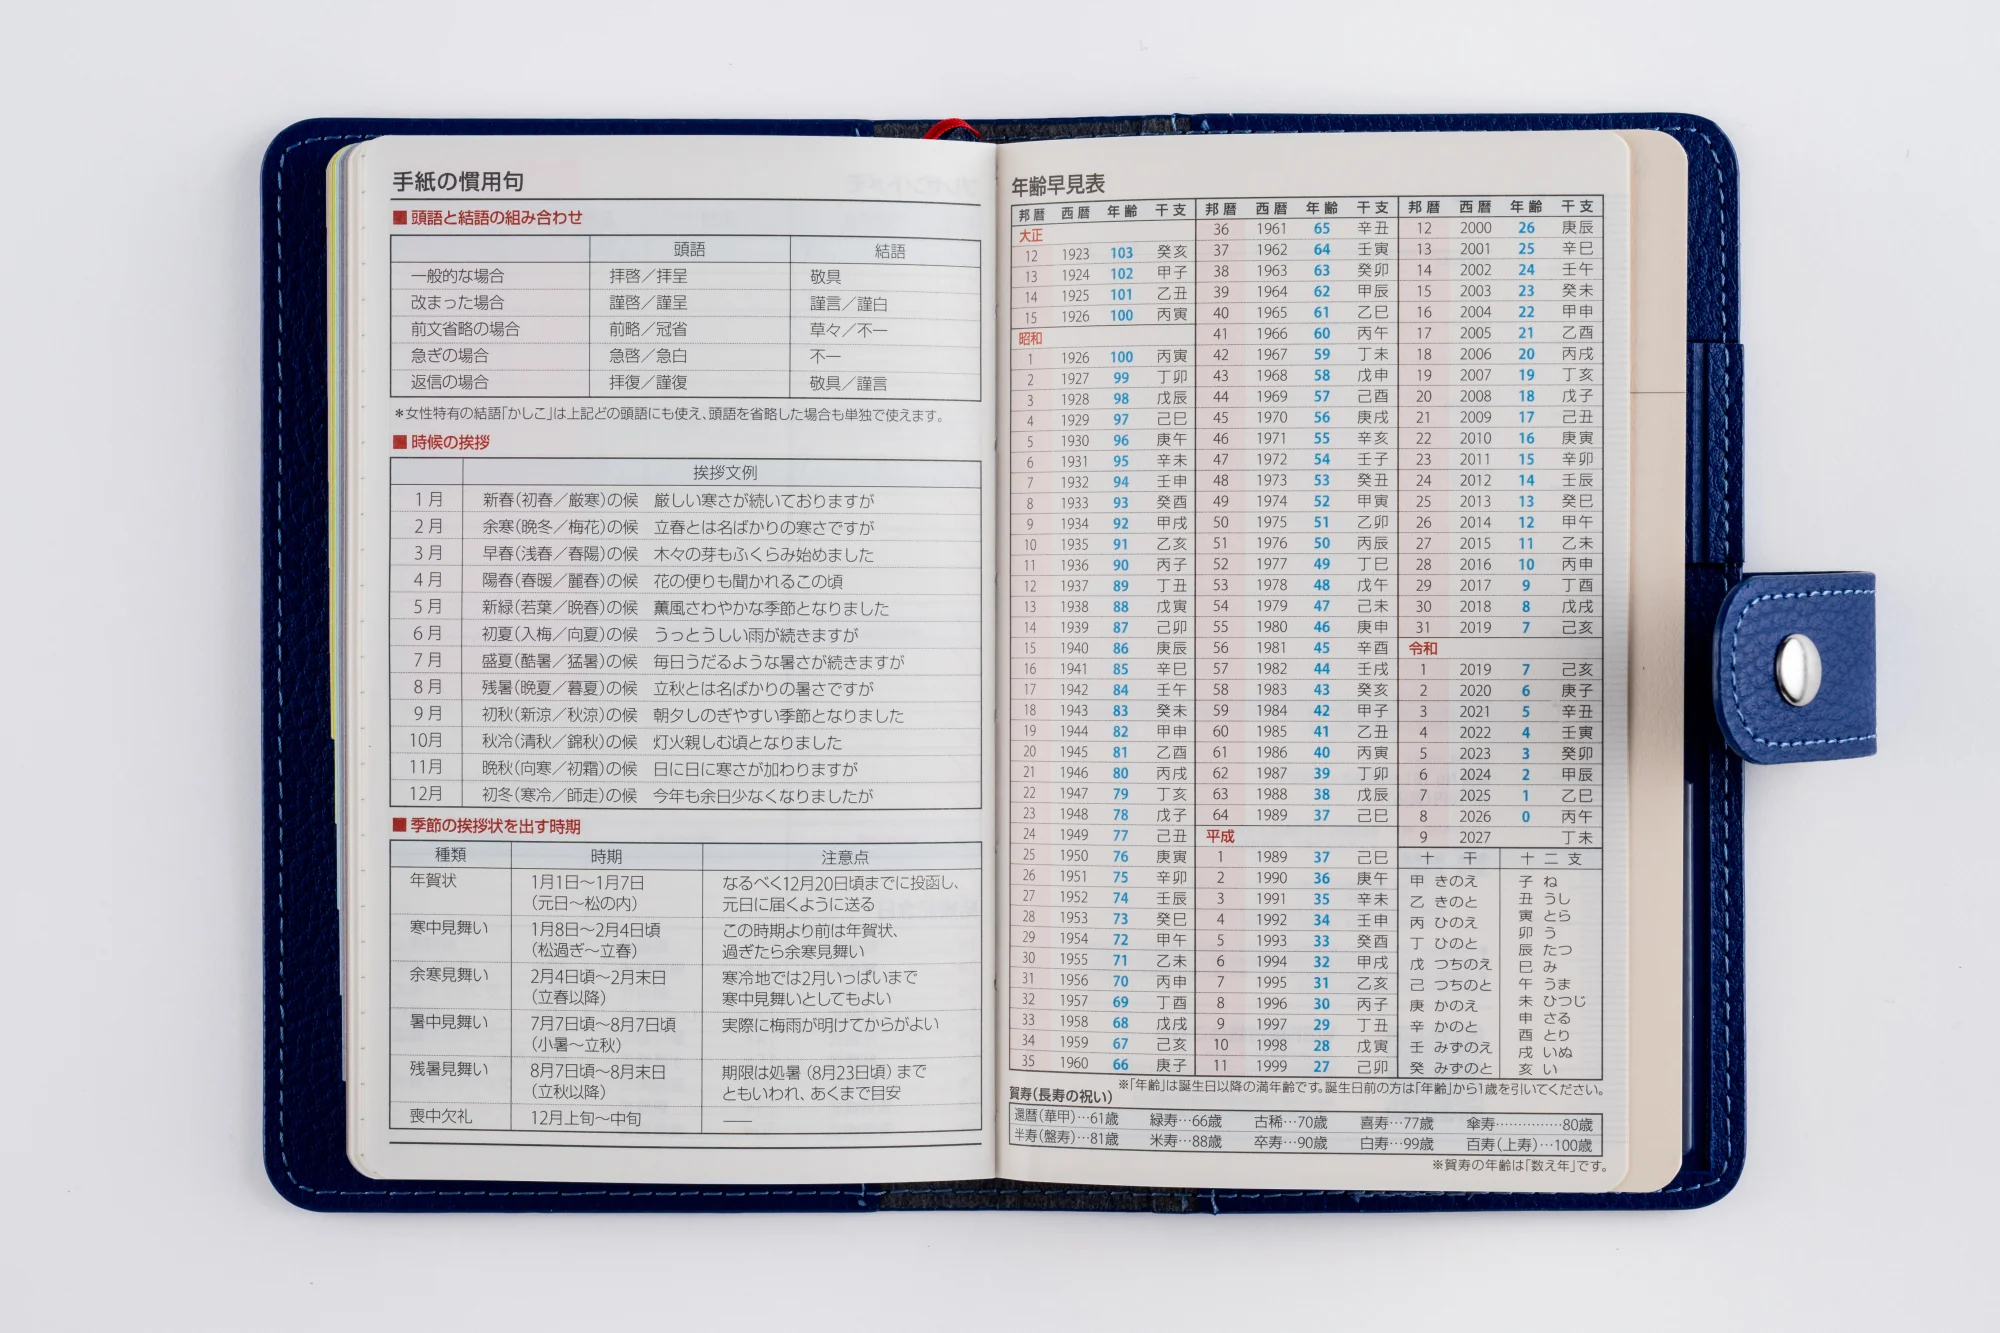 手紙の慣用句
■ 頭語と結語の組み合わせ
頭語 結語
一般的な場合 拝啓／拝呈 敬具
改まった場合 謹啓／謹呈 謹言／謹白
前文省略の場合 前略／冠省 草々／不一
急ぎの場合 急啓／急白 不一
返信の場合 拝復／謹復 敬具／謹言
＊女性特有の結語「かしこ」は上記どの頭語にも使え、頭語を省略した場合も単独で使えます。
■ 時候の挨拶
挨拶文例
1月 新春(初春／厳寒)の候 厳しい寒さが続いておりますが
2月 余寒(晩冬／梅花)の候 立春とは名ばかりの寒さですが
3月 早春(浅春／春陽)の候 木々の芽もふくらみ始めました
4月 陽春(春暖／麗春)の候 花の便りも聞かれるこの頃
5月 新緑(若葉／晩春)の候 薫風さわやかな季節となりました
6月 初夏(入梅／向夏)の候 うっとうしい雨が続きますが
7月 盛夏(酷暑／猛暑)の候 毎日うだるような暑さが続きますが
8月 残暑(晩夏／暮夏)の候 立秋とは名ばかりの暑さですが
9月 初秋(新涼／秋涼)の候 朝夕しのぎやすい季節となりました
10月 秋冷(清秋／錦秋)の候 灯火親しむ頃となりました
11月 晩秋(向寒／初霜)の候 日に日に寒さが加わりますが
12月 初冬(寒冷／師走)の候 今年も余日少なくなりましたが
■ 季節の挨拶状を出す時期
種類 時期 注意点
年賀状 1月1日～1月7日 なるべく12月20日頃までに投函し、
(元日～松の内) 元日に届くように送る
寒中見舞い 1月8日～2月4日頃 この時期より前は年賀状、
(松過ぎ～立春) 過ぎたら余寒見舞い
余寒見舞い 2月4日頃～2月末日 寒冷地では2月いっぱいまで
(立春以降) 寒中見舞いとしてもよい
暑中見舞い 7月7日頃～8月7日頃 実際に梅雨が明けてからがよい
(小暑～立秋)
残暑見舞い 8月7日頃～8月末日 期限は処暑(8月23日頃)まで
(立秋以降) ともいわれ、あくまで目安
喪中欠礼 12月上旬～中旬 ――
年齢早見表
邦暦 西暦 年齢 干支
大正
12 1923 103 癸亥
13 1924 102 甲子
14 1925 101 乙丑
15 1926 100 丙寅
昭和
1 1926 100 丙寅
2 1927 99 丁卯
3 1928 98 戊辰
4 1929 97 己巳
5 1930 96 庚午
6 1931 95 辛未
7 1932 94 壬申
8 1933 93 癸酉
9 1934 92 甲戌
10 1935 91 乙亥
11 1936 90 丙子
12 1937 89 丁丑
13 1938 88 戊寅
14 1939 87 己卯
15 1940 86 庚辰
16 1941 85 辛巳
17 1942 84 壬午
18 1943 83 癸未
19 1944 82 甲申
20 1945 81 乙酉
21 1946 80 丙戌
22 1947 79 丁亥
23 1948 78 戊子
24 1949 77 己丑
25 1950 76 庚寅
26 1951 75 辛卯
27 1952 74 壬辰
28 1953 73 癸巳
29 1954 72 甲午
30 1955 71 乙未
31 1956 70 丙申
32 1957 69 丁酉
33 1958 68 戊戌
34 1959 67 己亥
35 1960 66 庚子
邦暦 西暦 年齢 干支
36 1961 65 辛丑
37 1962 64 壬寅
38 1963 63 癸卯
39 1964 62 甲辰
40 1965 61 乙巳
41 1966 60 丙午
42 1967 59 丁未
43 1968 58 戊申
44 1969 57 己酉
45 1970 56 庚戌
46 1971 55 辛亥
47 1972 54 壬子
48 1973 53 癸丑
49 1974 52 甲寅
50 1975 51 乙卯
51 1976 50 丙辰
52 1977 49 丁巳
53 1978 48 戊午
54 1979 47 己未
55 1980 46 庚申
56 1981 45 辛酉
57 1982 44 壬戌
58 1983 43 癸亥
59 1984 42 甲子
60 1985 41 乙丑
61 1986 40 丙寅
62 1987 39 丁卯
63 1988 38 戊辰
64 1989 37 己巳
平成
1 1989 37 己巳
2 1990 36 庚午
3 1991 35 辛未
4 1992 34 壬申
5 1993 33 癸酉
6 1994 32 甲戌
7 1995 31 乙亥
8 1996 30 丙子
9 1997 29 丁丑
10 1998 28 戊寅
11 1999 27 己卯
邦暦 西暦 年齢 干支
12 2000 26 庚辰
13 2001 25 辛巳
14 2002 24 壬午
15 2003 23 癸未
16 2004 22 甲申
17 2005 21 乙酉
18 2006 20 丙戌
19 2007 19 丁亥
20 2008 18 戊子
21 2009 17 己丑
22 2010 16 庚寅
23 2011 15 辛卯
24 2012 14 壬辰
25 2013 13 癸巳
26 2014 12 甲午
27 2015 11 乙未
28 2016 10 丙申
29 2017 9 丁酉
30 2018 8 戊戌
31 2019 7 己亥
令和
1 2019 7 己亥
2 2020 6 庚子
3 2021 5 辛丑
4 2022 4 壬寅
5 2023 3 癸卯
6 2024 2 甲辰
7 2025 1 乙巳
8 2026 0 丙午
9 2027 丁未
十干
甲 きのえ
乙 きのと
丙 ひのえ
丁 ひのと
戊 つちのえ
己 つちのと
庚 かのえ
辛 かのと
壬 みずのえ
癸 みずのと
十二支
子 ね
丑 うし
寅 とら
卯 う
辰 たつ
巳 み
午 うま
未 ひつじ
申 さる
酉 とり
戌 いぬ
亥 い
※「年齢」は誕生日以降の満年齢です。誕生日前の方は「年齢」から1歳を引いてください。
賀寿(長寿の祝い)
還暦(華甲)…61歳 緑寿…66歳 古稀…70歳 喜寿…77歳 傘寿……………80歳
半寿(盤寿)…81歳 米寿…88歳 卒寿…90歳 白寿…99歳 百寿(上寿)…100歳
※賀寿の年齢は「数え年」です。